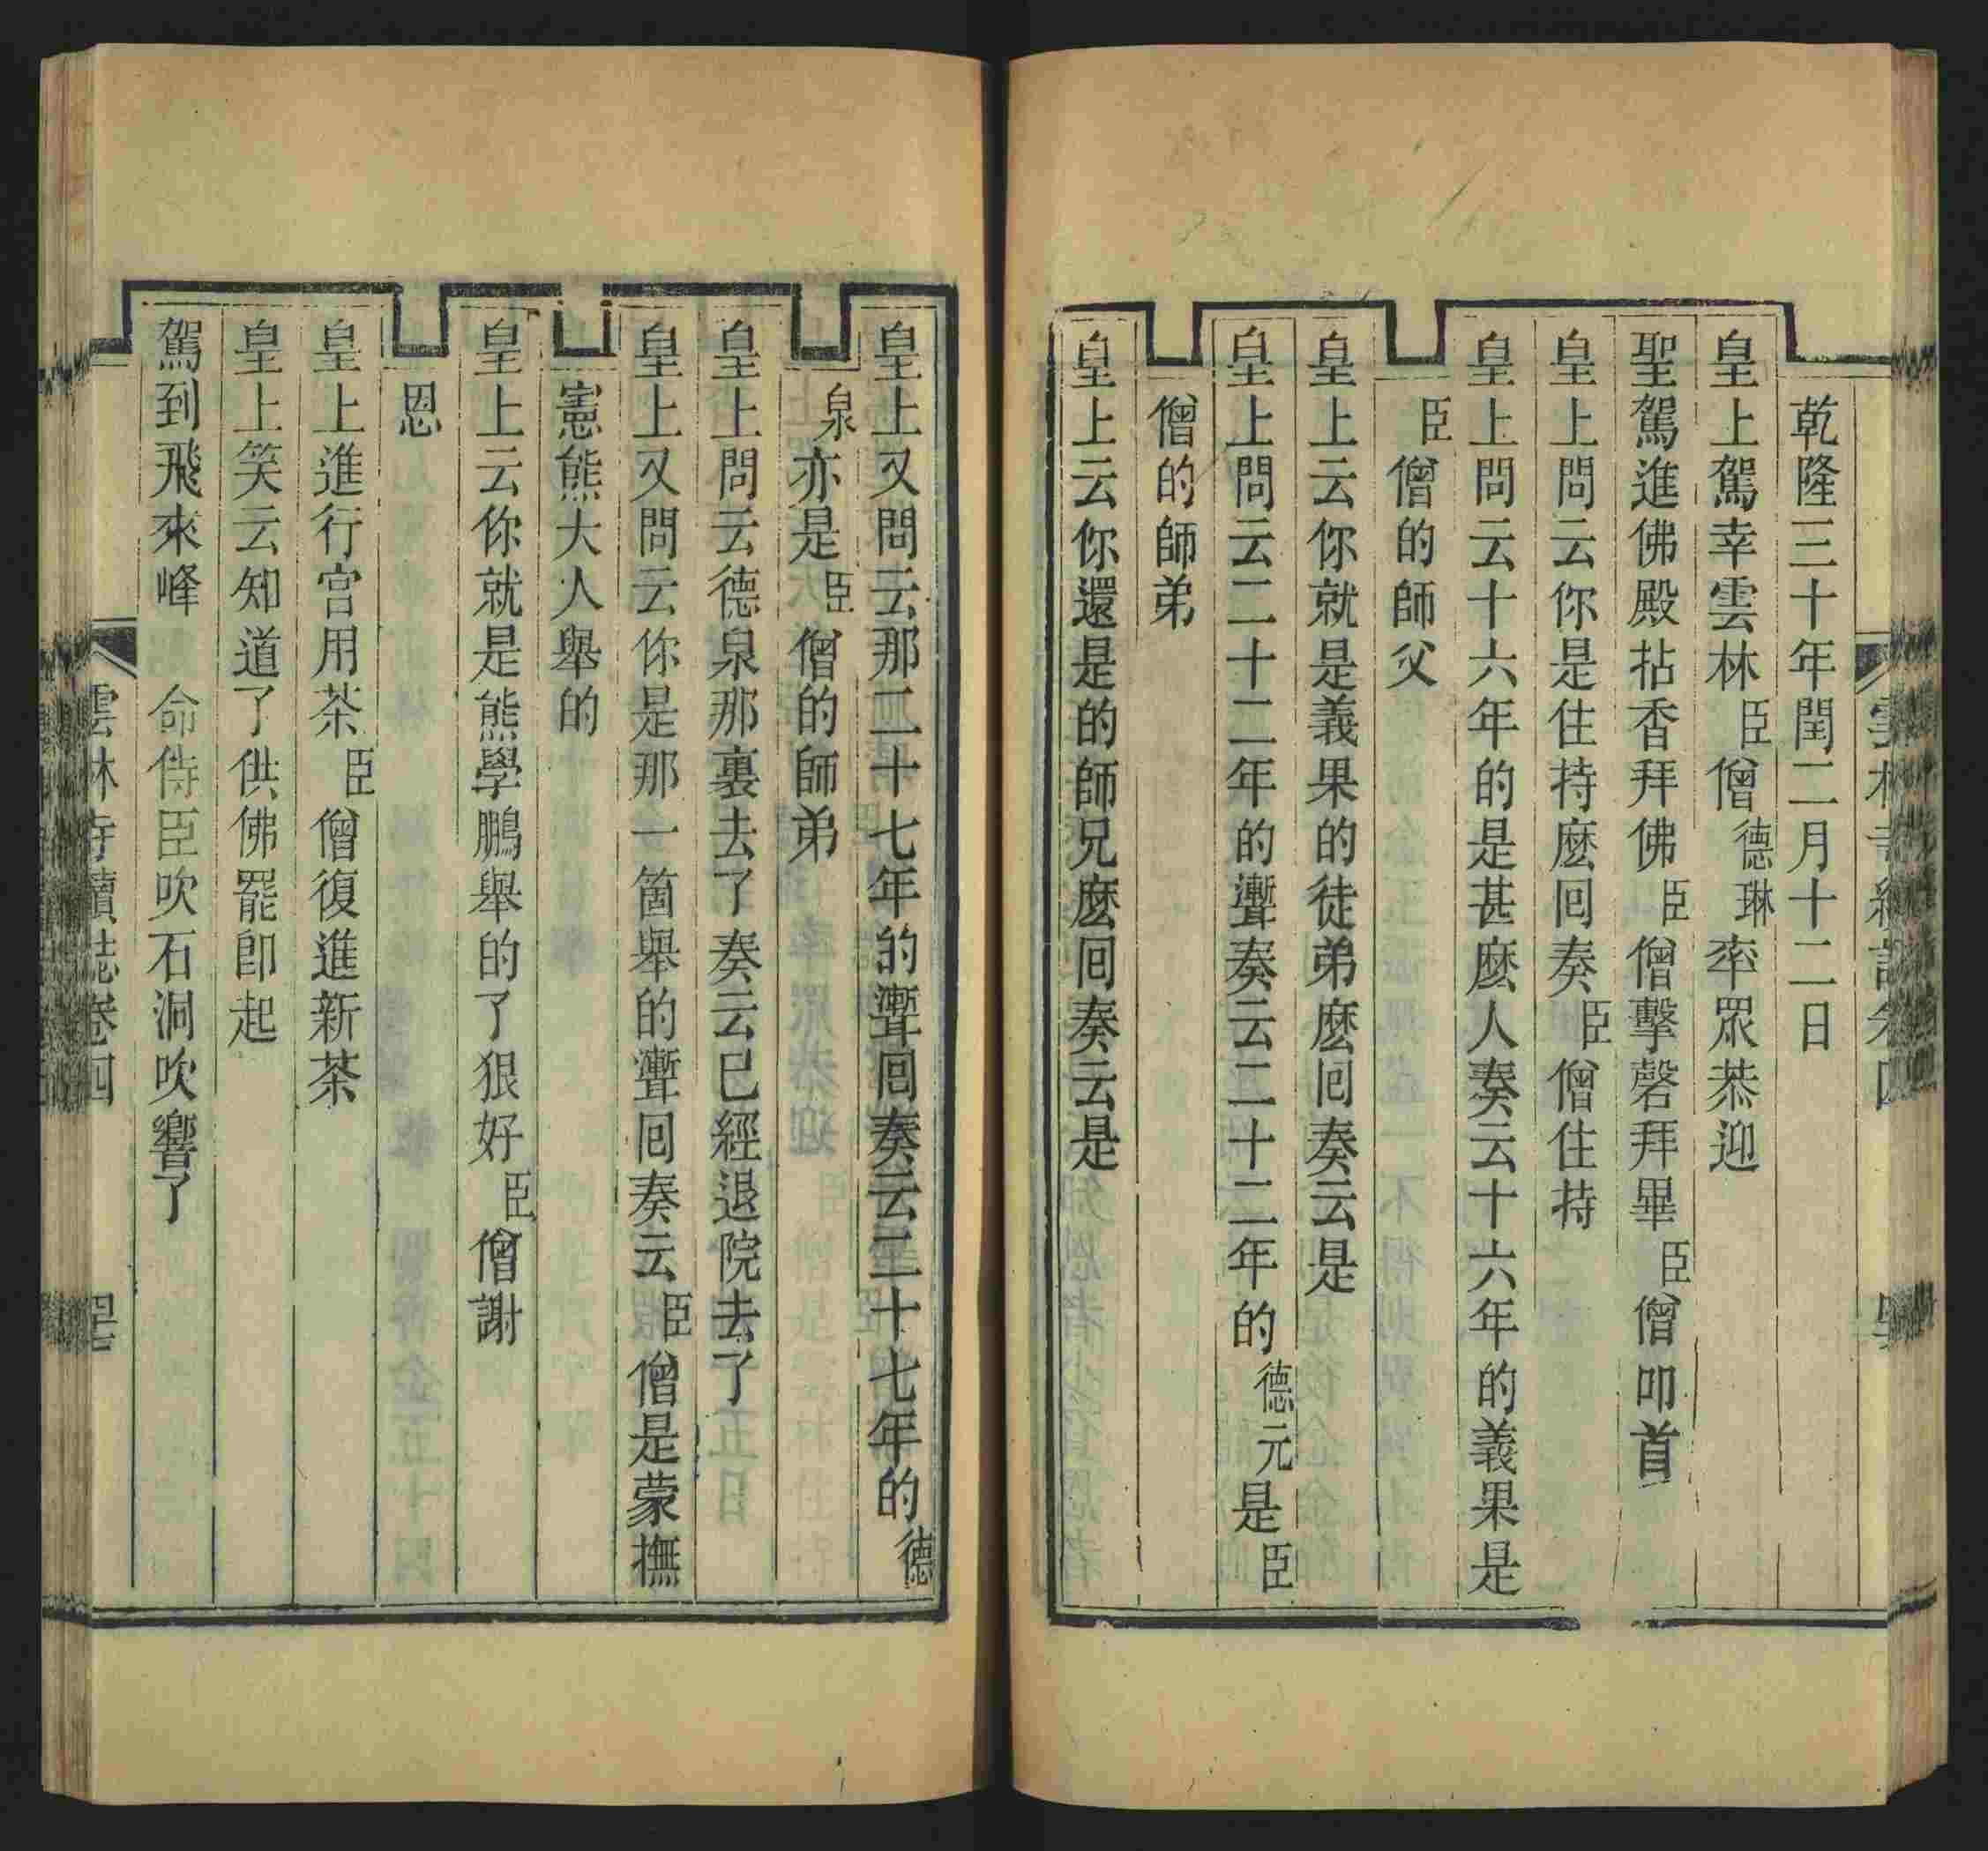 乾隆三十年閏二月十二日
皇上駕幸雲林臣僧德琳率眾恭迎
聖駕進佛殿拈香拜佛臣僧擊磬拜畢臣僧叩首
皇上問云你是住持麽回奏臣僧住持
皇上問云十六年的是甚麽人奏云十六年的義果是
臣僧的師父
皇上云你就是義果的徒弟麽回奏云是
皇上問云二十二年的聻奏云二十二年的德元是臣
僧的師弟
皇上云你還是的師兄麽回奏云是
皇上又問云那二十七年的聻回奏云二十七年的德
泉亦是臣僧的師弟
皇上問云德泉那裏去了奏云已經退院去了
皇上又問云你是那一箇舉的聻回奏云臣僧是蒙撫
憲熊大人舉的
皇上云你就是熊學鵬舉的了狠好臣僧謝
恩
皇上進行宮用茶臣僧復進新茶
皇上笑云知道了供佛罷卽起
駕到飛來峰 命侍臣吹石洞吹響了
雲林寺續誌卷四